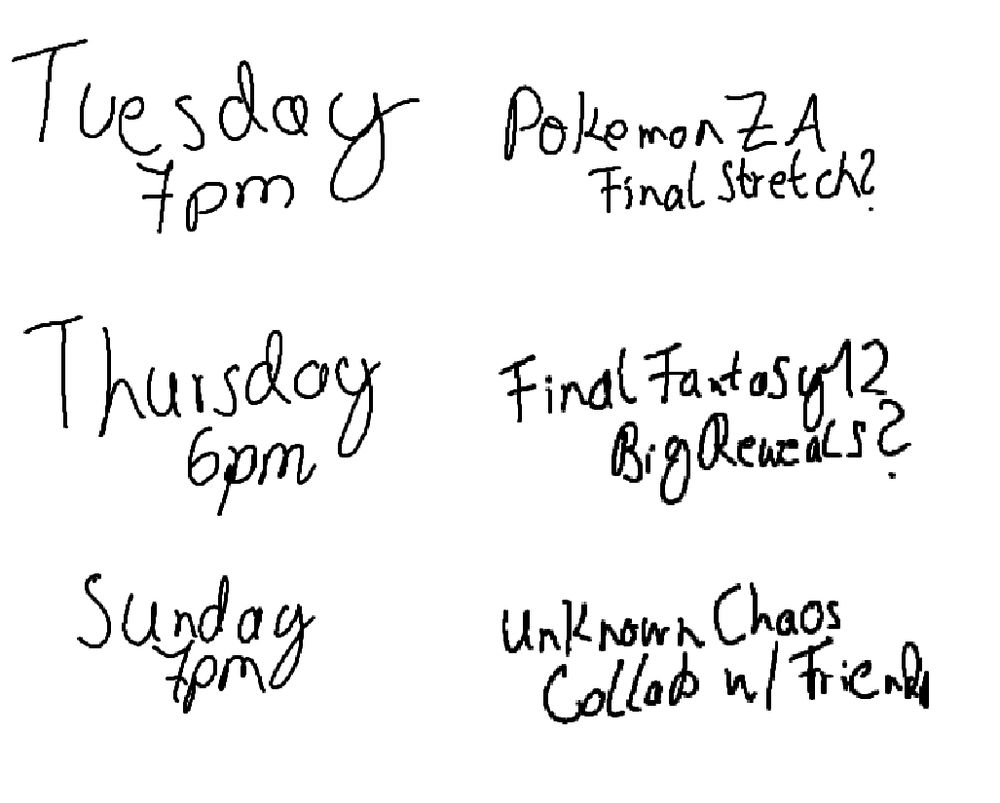 Tuesday
7pm
Pokemon ZA
Final Stretch?
Thursday
6pm
Final Fantasy 12
Big Reveals?
Sunday
7pm
Unknown Chaos
Collab w/ Friends